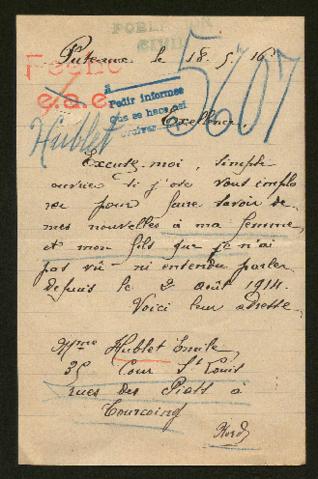 POBL
CIVIL
Puteaux le 18. 5. 16
Fecho
e.a.e.
5607
à
Pedir informes
Que se hace asi
Hublet
Exellence
Excusez-moi, simple
ouvrier si j'ose vous emplo
rer pour faire savoir de
mes nouvelles à ma femme,
et mon fils que je n'ai
pas vû ni entendu parler
depuis le 2 août 1914.
Voici leur adresse
Mme Hublet Emile,
35 Cour St Louis
rues des Piats à
Tourcoing
Nord